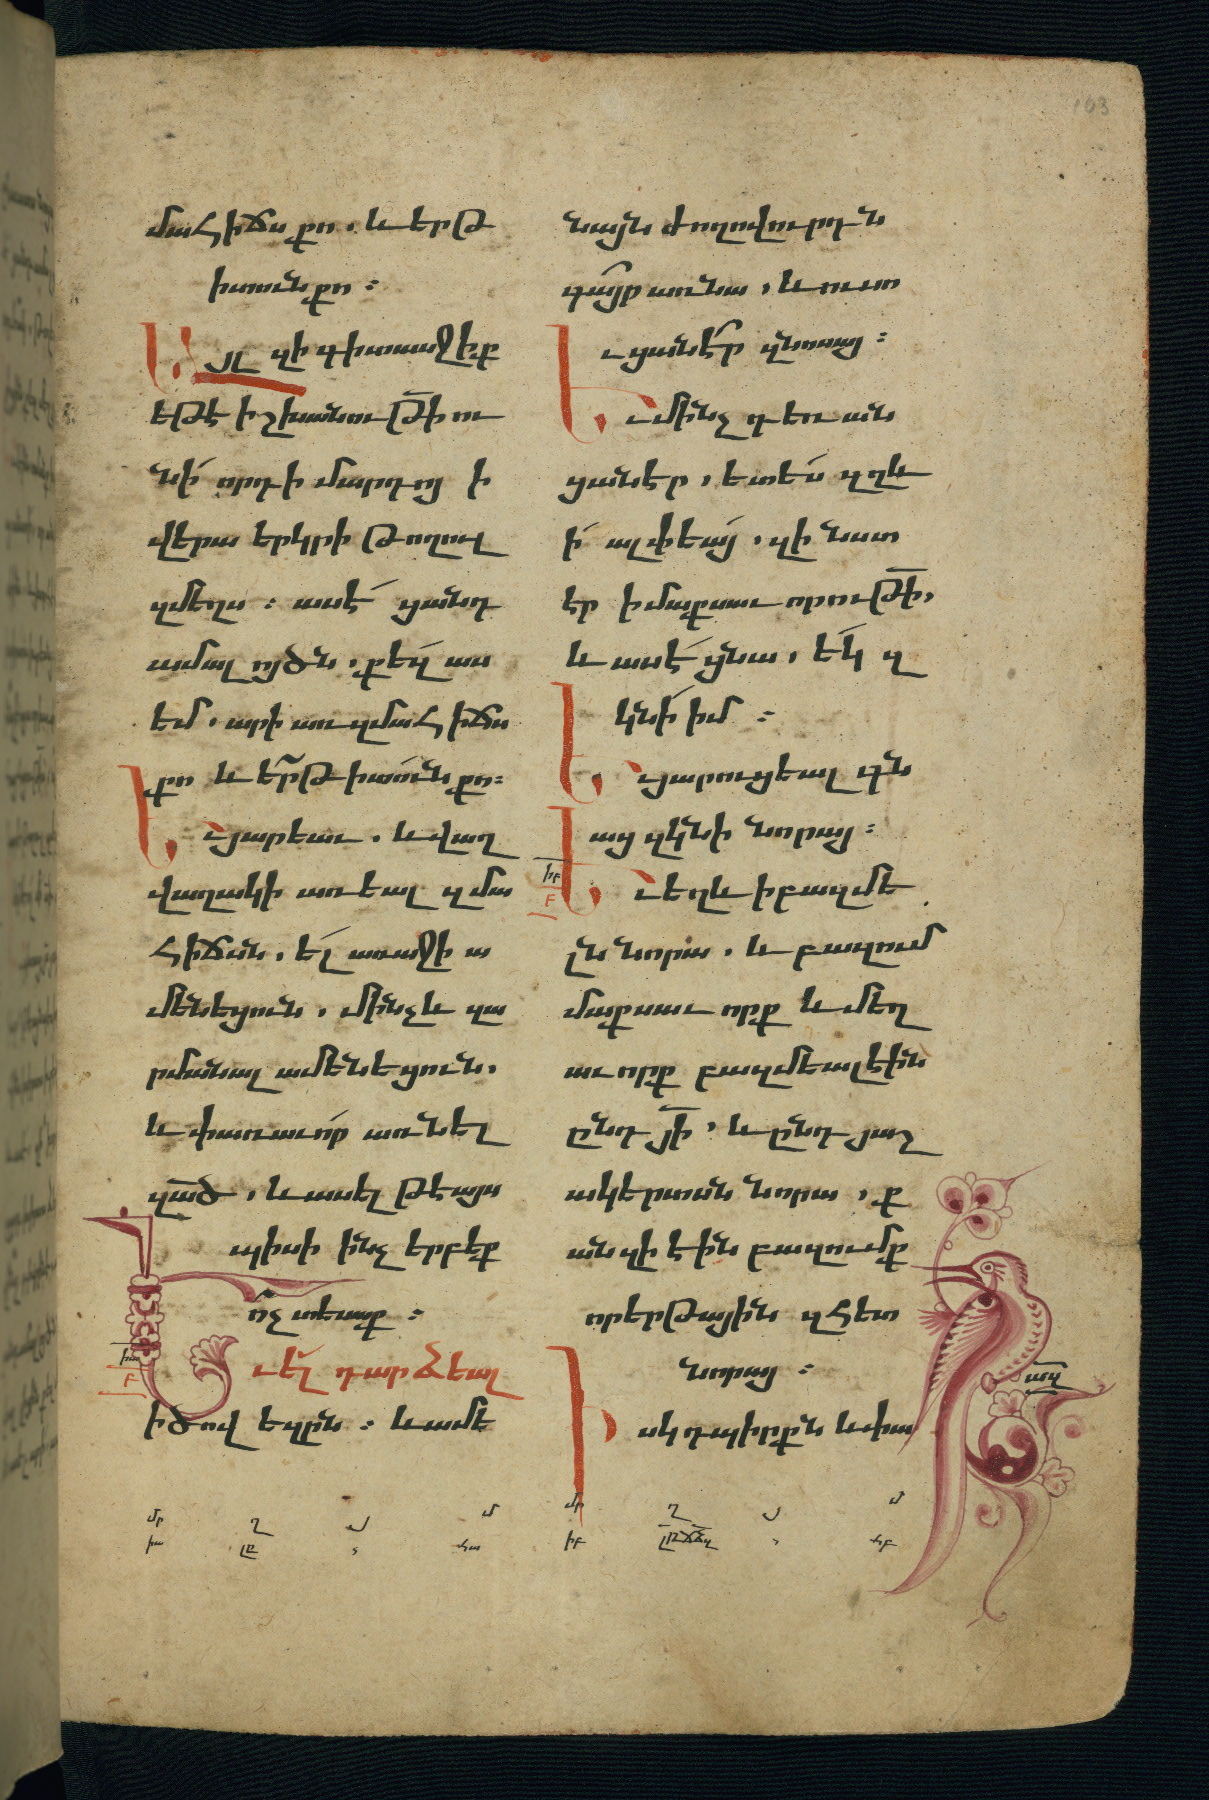 մահիճս քո. և երթ
ի տուն քո։
Այլ զի գիտասջիք
եթէ իշխանութի ու
նի որդի մարդոյ ի
վերա երկրի թողուլ
զմեղս։ ասէ ցանդ
ամալոյծն. քեզ աս
եմ. արի առ զմահիճս
քո և երթ ի տուն քո։
Եւ յարեաւ. և վաղ
վաղակի առեալ զմա
հիճսն. ել առաջի ա
մենեցուն. մինչև զա
րմանալ ամենեցուն.
և փառաւոր առնել
զած. և ասել թէ այս
պիսի ինչ երբէք
ոչ տեսաք։
Եւ ել դարձեալ
ի ծովեզրն։ և ամե
նայն ժողովուրդն
գայր առ նա. և ուսո
ւցանէր զնոսայ։
Եւ մինչդեռ ան
ցանէր. ետես զղև
ի ալփեայ. զի նստ
էր ի մաքսաւորութի,
և ասէ ցնա. եկ զ
կնի իմ։
Եւ յարուցեալ գն
աց զկնի նորայ։
Եւ եղև ի բազմե
լն նորա. և բազում
մաքսաւորք և մեղ
աւորք բազմեալ էին
ընդ յի. և ընդ յաշ
ակերտսն նորա, ք
անզի էին բազումք
որ երթային զհետ
նորայ։
Իսկ դպիրքն և փա